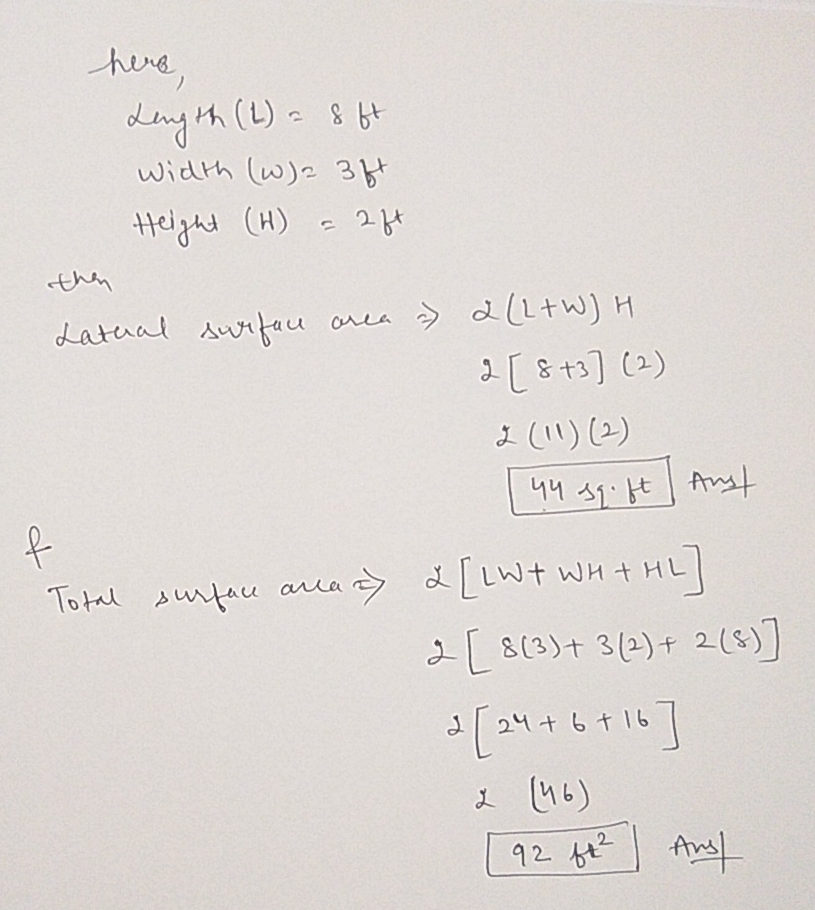 here,
Length (L) = 8 ft
Width (W) = 3 ft
Height (H) = 2 ft
then
Lateral surface area ⇒ 2(L+W) H
2[8+3] (2)
2(11)(2)
44 sq. ft Ans
&
Total surface area ⇒ 2[LW+ WH + HL]
2[8(3)+ 3(2)+ 2(8)]
2[24 + 6 + 16]
2 (46)
92 ft² Ans